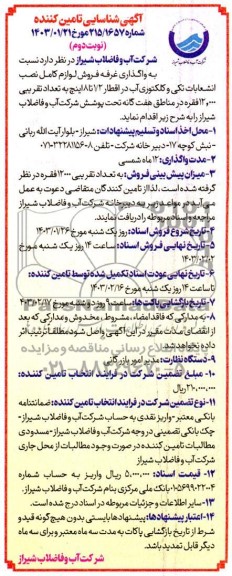 آگهی شناسایی تامین کننده
شماره ۲۱۵/۱۶۵۷ مورخ ۱۴۰۳/۰۱/۲۱
(نوبت دوم)
شرکت آب و فاضلاب شیراز در نظر دارد نسبت
به واگذاری غرفه فروش لوازم کامل نصب
انشعابات تکی و کلکتوری آب در اقطار
اینچ به تعداد تقریبی
۱۲,۰۰۰ فقره در مناطق هفت گانه تحت پوشش شرکت آب و فاضلاب
شیراز را به شرح زیر اقدام نماید.
۱- محل اخذ اسناد و تسلیم پیشنهادات: شیراز - بلوار آیت الله ربانی
- نبش کوچه ۱۷- دبیر خانه شرکت - تلفن
۲- مدت واگذاری: ۱۲ ماه شمسی
۳- میزان پیش بینی فروش: به تعداد تقریبی ۱۲۰۰۰ فقره در نظر
گرفته شده است. لذا از تامین کنندگان متقاضی دعوت به عمل
می آید در مواعد مقرر به دبیرخانه شرکت آب و فاضلاب شیراز
مراجعه و اسناد مربوطه را دریافت نمایند.
۴- تاریخ شروع فروش اسناد: روز یک شنبه مورخ ۱۴۰۳/۰۱/۲۶
۵- تاریخ نهایی فروش اسناد: ساعت ۱۴ روز یک شنبه مورخ
۱۴۰۳/۰۲/۰۲
۶- تاریخ نهایی عودت اسناد تکمیل شده توسط تامین کننده:
تا ساعت ۱۴ روز یک شنبه مورخ ۱۴۰۳/۰۲/۱۶
۷- تاریخ بازگشایی پاکت ها: ساعت ۹ روز دوشنبه مورخ ۱۴۰۳/۰۲/۱۷
۸- به مدارکی که فاقد امضاء، مشروط، مخدوش و مدارکی که بعد
از انقضای مدت مقرر در این آگهی واصل شود مطلقا ترتیب اثر
داده نخواهد شد.
۹- دستگاه نظارت: مدیر امور بازرگانی
۱۰- مبلغ تضمین شرکت در فرایند انتخاب تامین کننده:
ریال
۱۱- نوع تضمین شرکت در فرایند انتخاب تامین کننده: ضمانتنامه
بانکی معتبر - واریز نقدی به حساب شرکت آب و فاضلاب شیراز -
چک بانکی تضمینی در وجه شرکت آب و فاضلاب شیراز - مسدودی
مطالبات تامین کننده در صورت وجود مطالبات از محل جاری
شرکت آب و فاضلاب شیراز
۱۲- قیمت اسناد: ۵,۰۰۰,۰۰۰ ریال واریز به حساب شماره
بانک ملی مرکزی بنام شرکت آب و فاضلاب شیراز.
۱۳- سایر اطلاعات و جزئیات مربوطه در اسناد درج شده است.
۱۴- اعتبار پیشنهادها: پیشنهادها بایستی بدون هیچ گونه قید و
شرط از تاریخ بازگشایی پاکات به مدت سه ماه معتبر و برای سه ماه
دیگر قابل تمدید باشد.
شرکت آب و فاضلاب شیراز